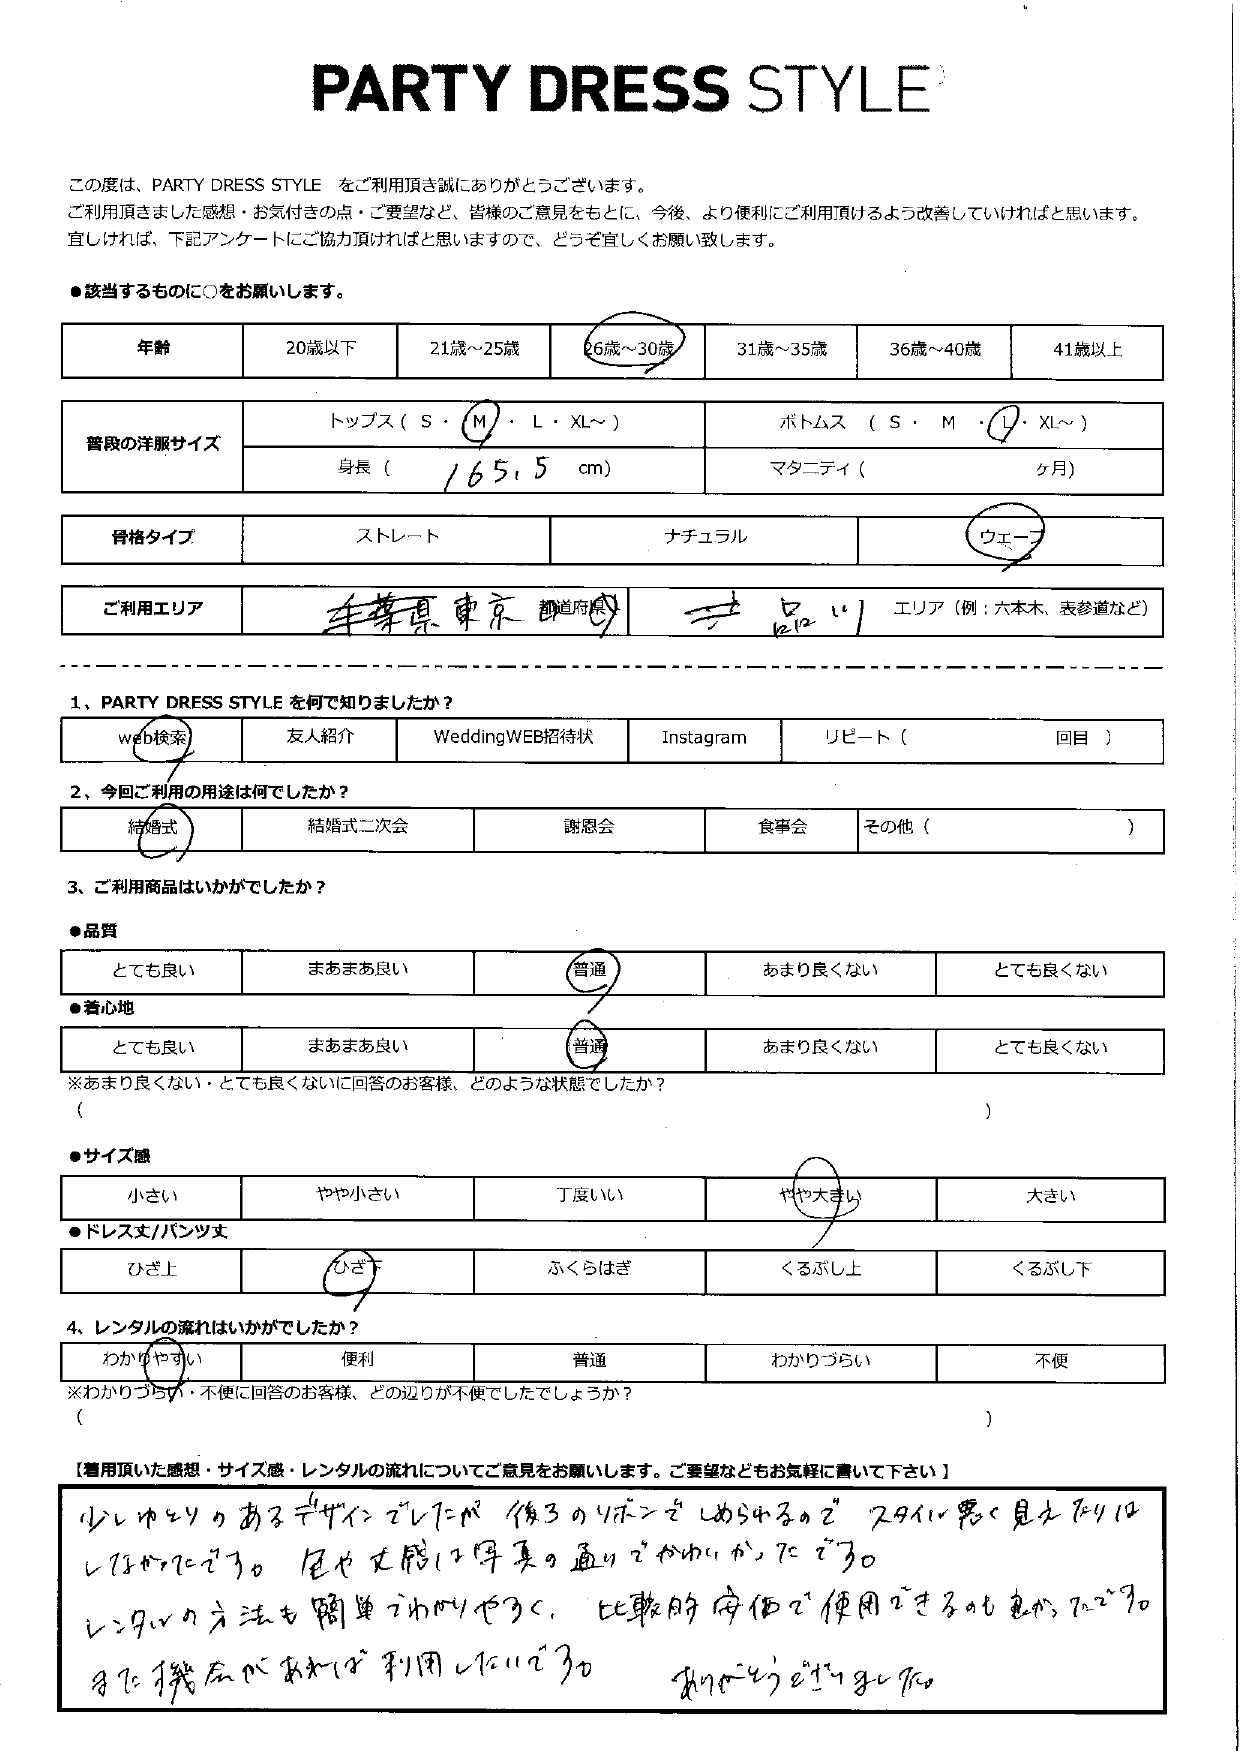 PARTY DRESS STYLE
この度は、PARTY DRESS STYLE をご利用頂き誠にありがとうございます。
ご利用頂きました感想・お気付きの点・ご要望など、皆様のご意見をもとに、今後、より便利にご利用頂けるよう改善していければと思います。
宜しければ、下記アンケートにご協力頂ければと思いますので、どうぞ宜しくお願い致します。
●該当するものに○をお願いします。
年齢 20歳以下 21歳～25歳 26歳～30歳 31歳～35歳 36歳～40歳 41歳以上
普段の洋服サイズ トップス ( S ・ M ・ L ・ XL～ ) ボトムス ( S ・ M ・ L ・ XL～ )
身長 ( 165.5 cm) マタニティ ( ヶ月)
骨格タイプ ストレート ナチュラル ウェーブ
ご利用エリア 千葉県 東京 都道府県 品川 エリア（例：六本木、表参道など）
1、PARTY DRESS STYLE を何で知りましたか？
web検索 友人紹介 WeddingWEB招待状 Instagram リピート ( 回目 )
2、今回ご利用の用途は何でしたか？
結婚式 結婚式二次会 謝恩会 食事会 その他 ( )
3、ご利用商品はいかがでしたか？
●品質
とても良い まあまあ良い 普通 あまり良くない とても良くない
●着心地
とても良い まあまあ良い 普通 あまり良くない とても良くない
※あまり良くない・とても良くないに回答のお客様、どのような状態でしたか？
( )
●サイズ感
小さい やや小さい 丁度いい やや大きい 大きい
●ドレス丈/パンツ丈
ひざ上 ひざ下 ふくらはぎ くるぶし上 くるぶし下
4、レンタルの流れはいかがでしたか？
わかりやすい 便利 普通 わかりづらい 不便
※わかりづらい・不便に回答のお客様、どの辺りが不便でしたでしょうか？
( )
【着用頂いた感想・サイズ感・レンタルの流れについてご意見をお願いします。ご要望などもお気軽に書いて下さい】
少しゆとりのあるデザインでしたが 後ろのリボンでしめられるので スタイル悪く見えたりは
しなかったです。 や丈感は写真の通りでかわいかったです。
レンタルの方法も簡単でわかりやすく、比較的安価で使用できるのも良かったです。
また機会があれば利用したいです。 ありがとうございました。